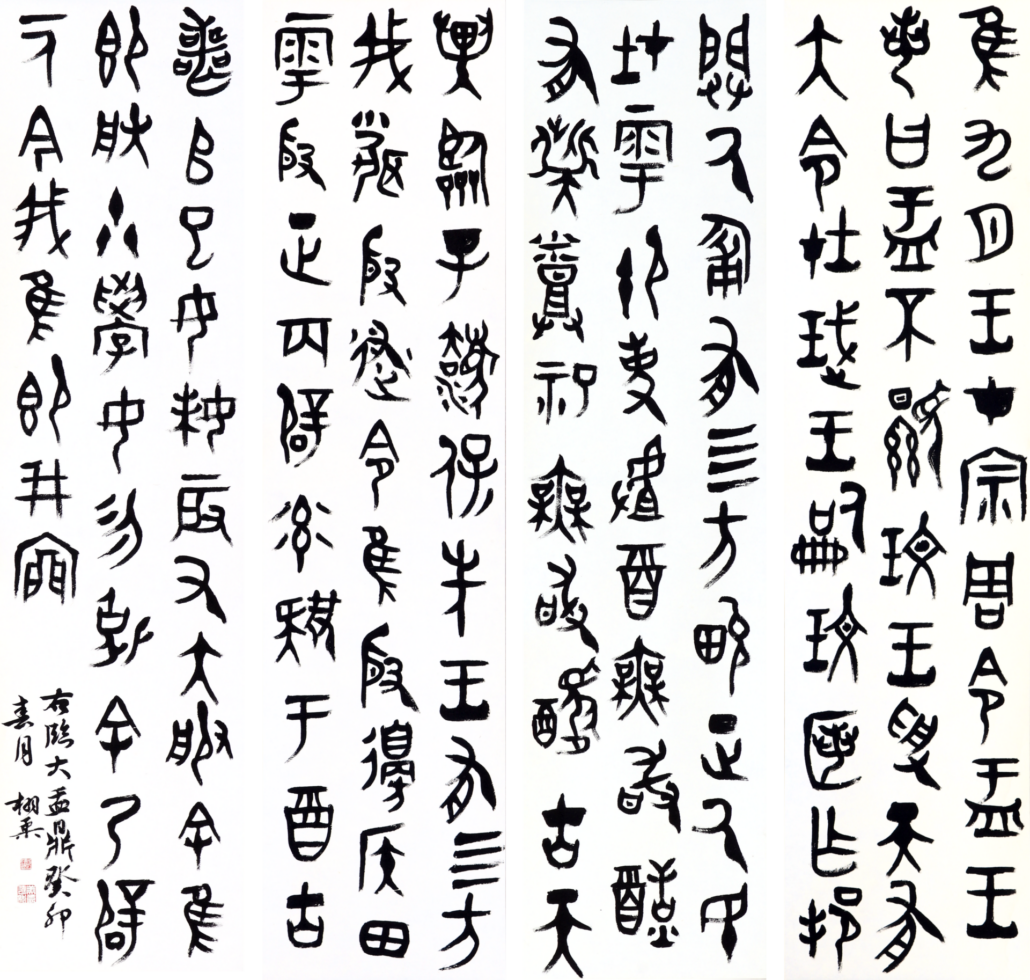 隹九月王才宗周令盂王
若曰盂不顯玟王受天有
大令在珷王嗣玟匿乍邦
闢氒匍有四方畯正氒民
在雩御事𠭯酉無敢酖
有祡烝祀無敢醻古天
異臨子灋保先王有四方
我聞殷述令隹殷邊侯田
雩殷正百辟率肄于酉古
喪𠂤已女妹辰又大服余隹
即朕小學女勿𠜱余乃辟
一人今我隹即井㐭
右臨大盂鼎癸卯
春月 栩